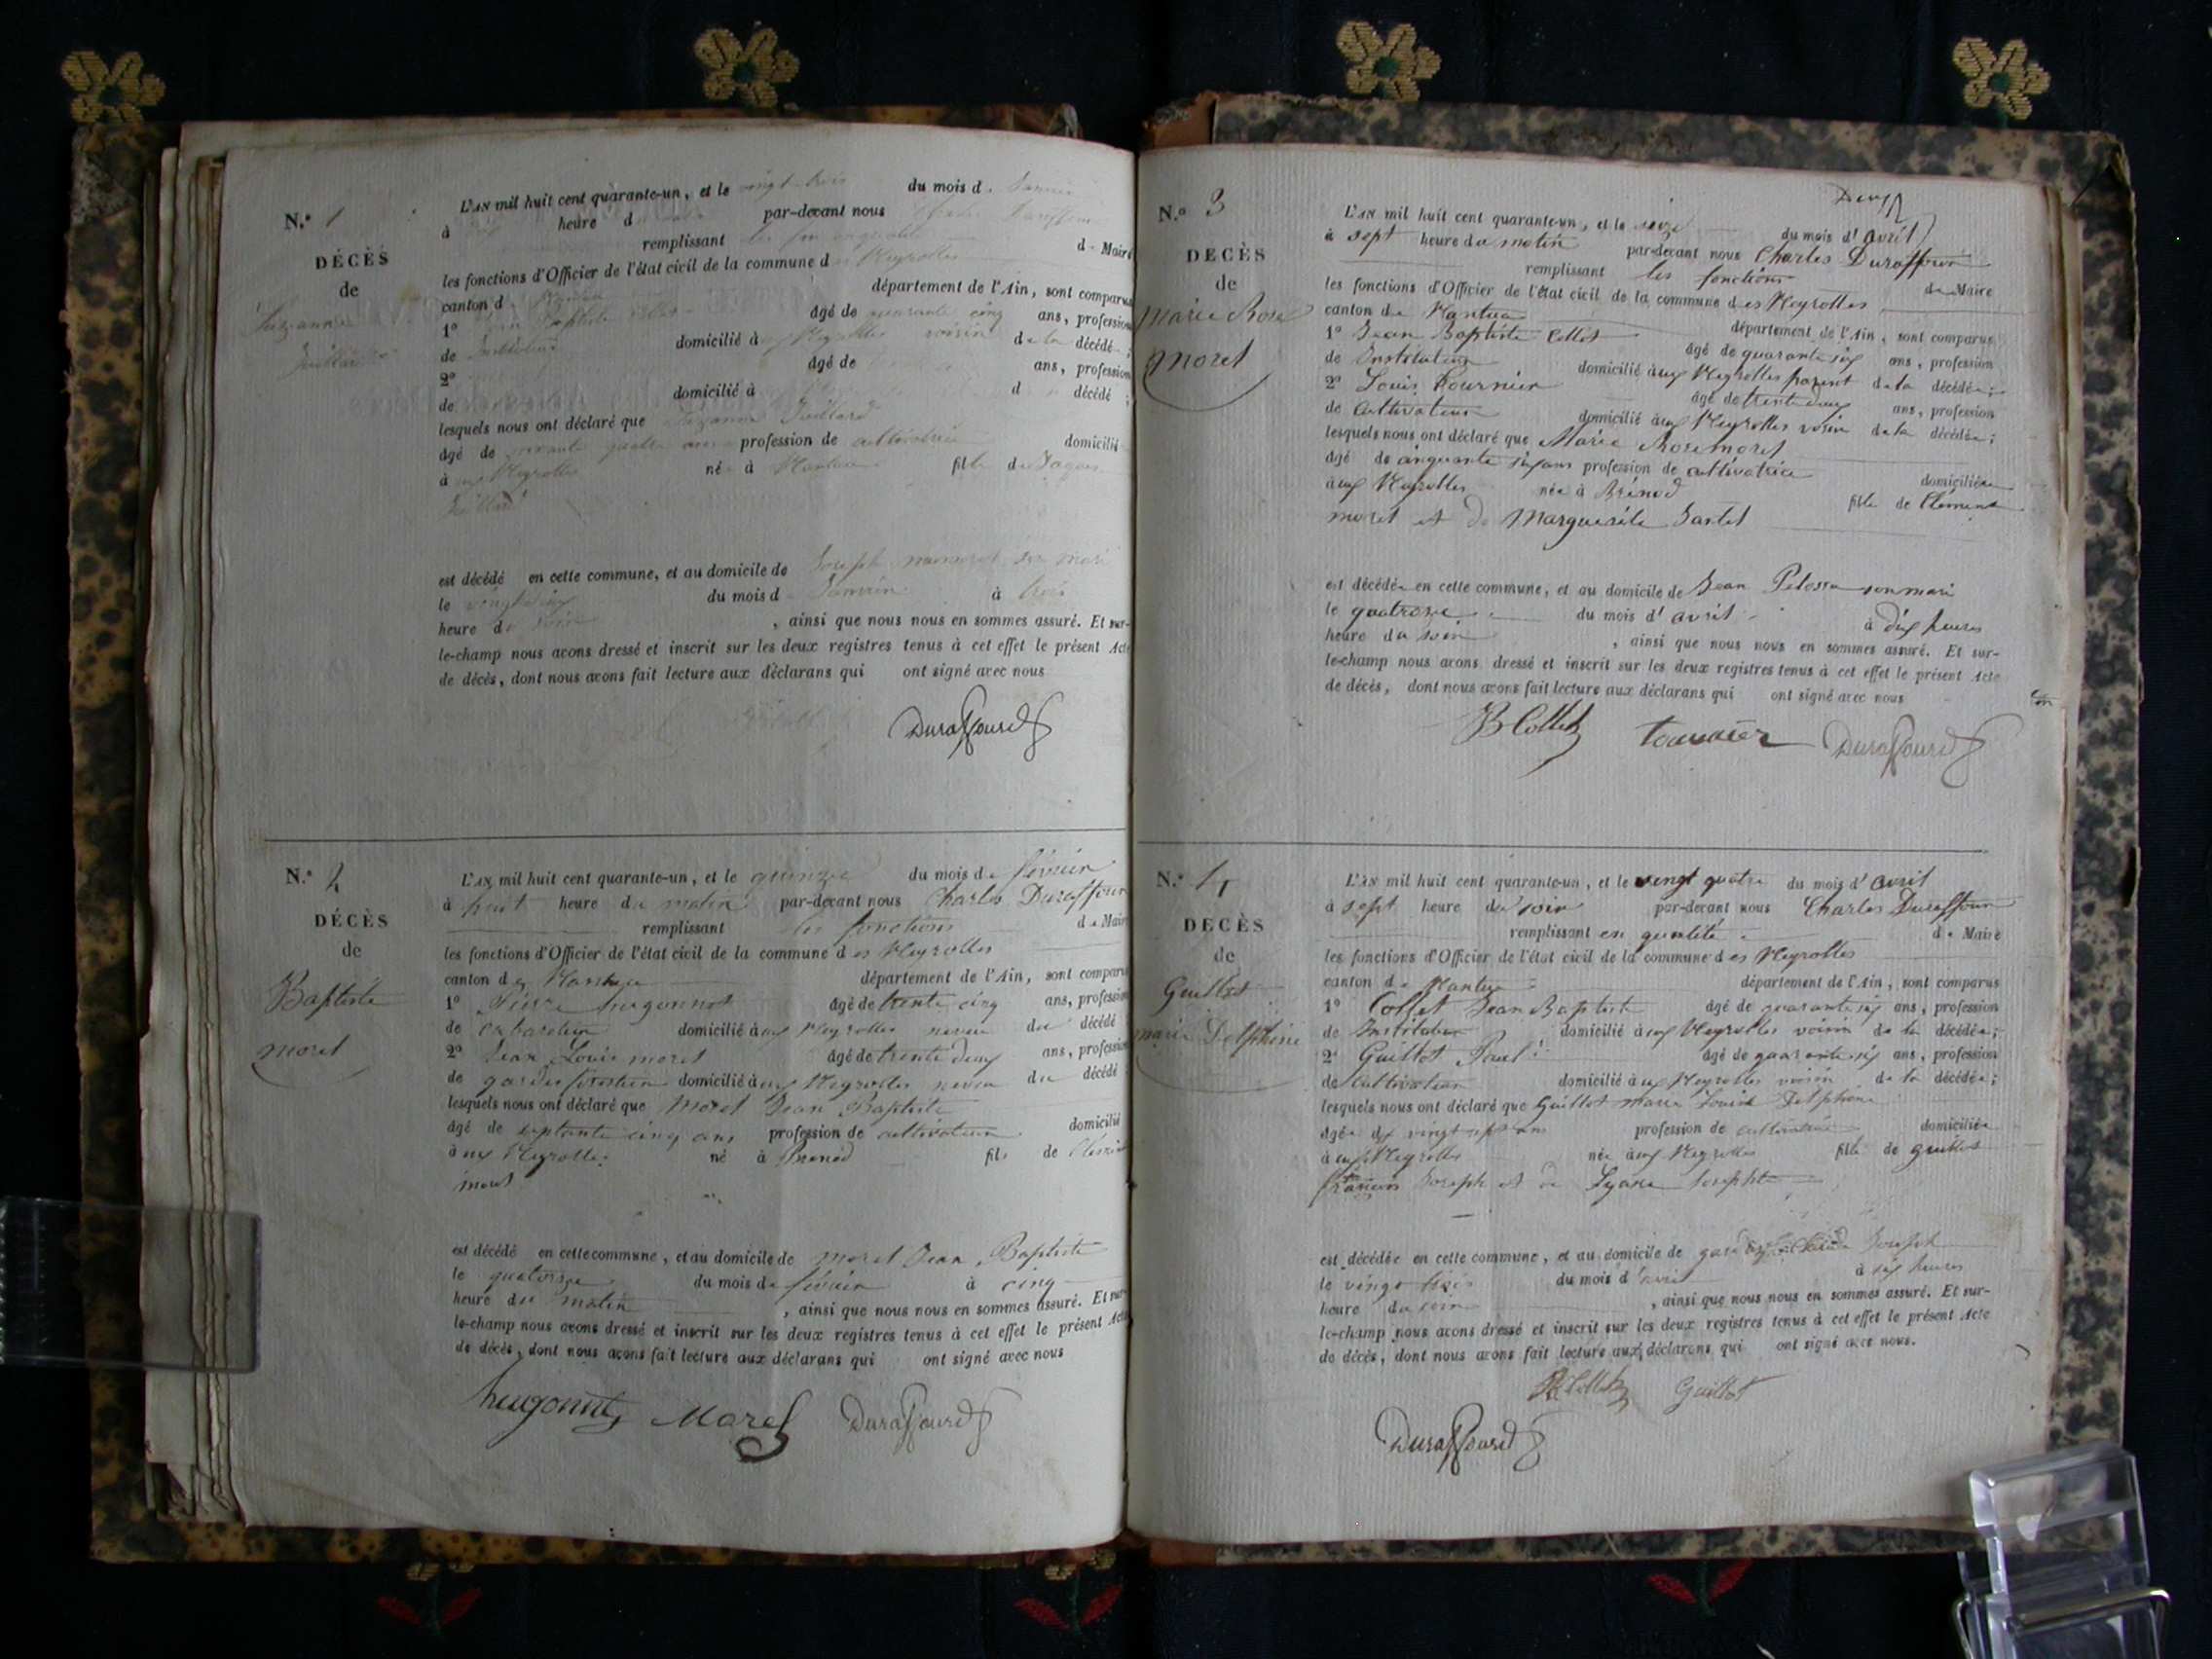 N.º 1
DÉCÈS
de
Suzanne
Juillard
L'AN mil huit cent quarante-un, et le vingt trois du mois d. Janvier
à heure d par-devant nous
remplissant d. Maire
les fonctions d'Officier de l'état civil de la commune d es Neyrolles
canton d département de l'Ain, sont comparus
1º Baptiste âgé de quarante cinq ans, profession
de Instituteur domicilié à ux Neyrolles voisin de la décédé ;
2º âgé de ans, profession
de domicilié à d décédé ;
lesquels nous ont déclaré que Suzanne Juillard
âgé de profession de cultivatrice domicilié
à ux Neyrolles née à Nantua fille de
Juillard
est décédé en cette commune, et au domicile de Joseph son mari
le du mois d Janvier à trois
heure du soir , ainsi que nous nous en sommes assuré. Et sur-
le-champ nous avons dressé et inscrit sur les deux registres tenus à cet effet le présent Acte
de décès, dont nous avons fait lecture aux déclarans qui ont signé avec nous
Duraffourd
N.º 2
DÉCÈS
de
Baptiste
moret
L'AN mil huit cent quarante-un, et le quinze du mois de février
à huit heure du matin par-devant nous Charles Duraffour
remplissant les fonctions de Maire
les fonctions d'Officier de l'état civil de la commune d es Neyrolles
canton de Nantua département de l'Ain, sont comparus
1º Pierre hugonnot âgé de trente cinq ans, profession
de domicilié à ux Neyrolles neveu du décédé
2º Jean Louis moret âgé de trente deux ans, profession
de garde forestier domicilié à ux Neyrolles neveu du décédé
lesquels nous ont déclaré que Moret Jean Baptiste
âgé de septante cinq ans profession de cultivateur domicilié
à ux Neyrolles né à Brenod fils de Clément
moret
est décédé en cette commune, et au domicile de moret Jean Baptiste
le quatorze du mois de février à cinq
heure du matin , ainsi que nous nous en sommes assuré. Et sur-
le-champ nous avons dressé et inscrit sur les deux registres tenus à cet effet le présent Acte
de décès, dont nous avons fait lecture aux déclarans qui ont signé avec nous
Morel Duraffourd
N.º 3
DECÈS
de
Marie Rose
Moret
Deux
L'AN mil huit cent quarante-un, et le seize du mois d' avril
à sept heure du matin par-devant nous Charles Duraffour
remplissant les fonctions de Maire
les fonctions d'Officier de l'état civil de la commune d es Neyrolles
canton de Nantua département de l'Ain, sont comparus
1º Jean Baptiste Collet âgé de quarante six ans, profession
de Instituteur domicilié à ux Neyrolles parent de la décédée ;
2º Louis Tournier âgé de trente deux ans, profession
de cultivateur domicilié à ux Neyrolles voisin de la décédée ;
lesquels nous ont déclaré que Marie Rose moret
âgé de cinquante six ans profession de cultivatrice domiciliée
à ux Neyrolles née à Brénod fille de Clément
moret et de Marguerite Jantet
est décédée en cette commune, et au domicile de Jean Pelossa son mari
le quatorze du mois d' avril à dix heures
heure du soir , ainsi que nous nous en sommes assuré. Et sur-
le-champ nous avons dressé et inscrit sur les deux registres tenus à cet effet le présent Acte
de décès, dont nous avons fait lecture aux déclarans qui ont signé avec nous
JB Collet Tournier Duraffourd
N.º 4
DECÈS
de
Guillot
marie Delphine
L'AN mil huit cent quarante-un, et le vingt quatre du mois d' avril
à sept heure du soir par-devant nous Charles Duraffour
remplissant en qualité de Maire
les fonctions d'Officier de l'état civil de la commune d es Neyrolles
canton de Nantua département de l'Ain, sont comparus
1º Collet Jean Baptiste âgé de quarante six ans, profession
de Instituteur domicilié à ux Neyrolles voisin de la décédée ;
2º Guillot Paul âgé de quarante six ans, profession
de cultivateur domicilié à ux Neyrolles voisin de la décédée ;
lesquels nous ont déclaré que Guillot marie Louise Delphine
âgée de vingt sept ans profession de cultivatrice domiciliée
à ux Neyrolles née à ux Neyrolles fille de guillot
françois Joseph et de Josephte
est décédée en cette commune, et au domicile de Joseph
le vingt trois du mois d' avril à six heures
heure du soir , ainsi que nous nous en sommes assuré. Et sur-
le-champ nous avons dressé et inscrit sur les deux registres tenus à cet effet le présent Acte
de décès, dont nous avons fait lecture aux déclarans qui ont signé avec nous.
JB Collet Guillot
Duraffourd